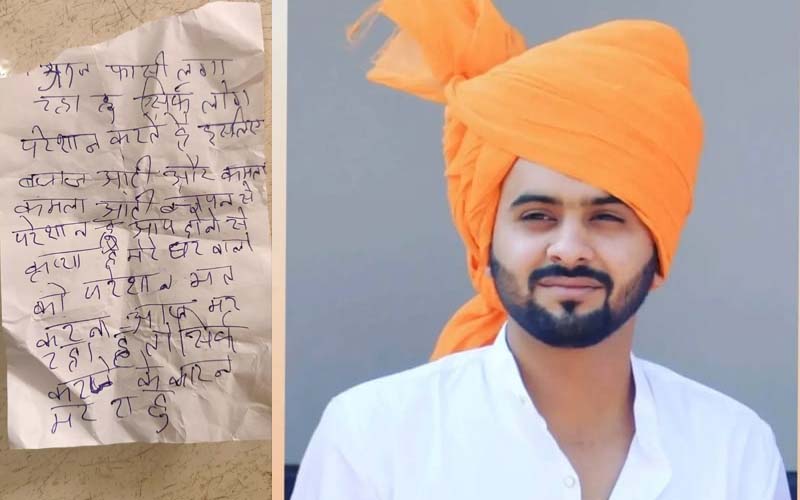 आज फासी लगा
रहा हु सिर्फ लोग
परेशान करते है इसलिए
बजाज आटी और कमला
कमला आटी बचपन से
परेशान हु आप दोनो से
है मेरे घर वालो
को परेशान मत
करना आज मर
रहा हु तो सिर्फ
के कारन
मर रा हु